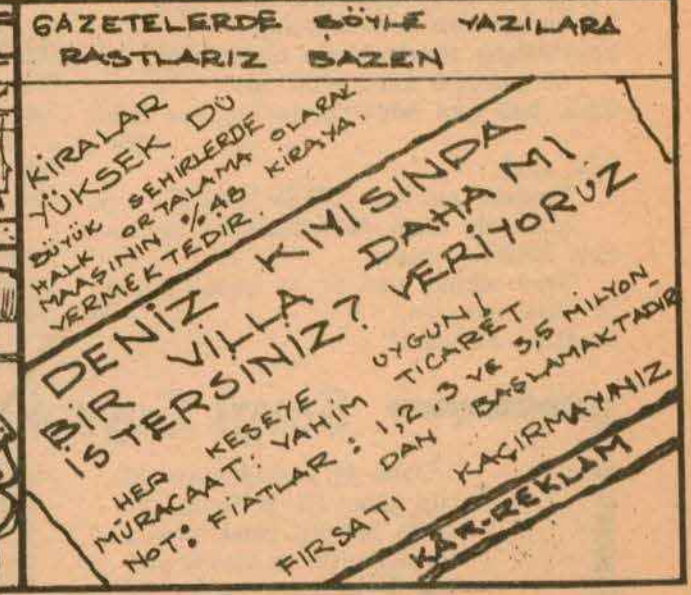 GAZETELERDE BÖYLE YAZILARA
RASTLARIZ BAZEN
KİRALAR
YÜKSEK DÜ
BÜYÜK ŞEHİRLERDE
HALK ORTALAMA OLARAK
MAAŞININ %48 KİRAYA.
VERMEKTEDİR.
DENİZ KIYISINDA
BİR VİLLA DAHA MI
İSTERSİNİZ? VERİYORUZ
HER KESEYE UYGUN!
MÜRACAAT: VAHİM TİCARET
NOT: FİATLAR : 1,2,3 VE 3,5 MİLYON
DAN BAŞLAMAKTADIR
FIRSATI KAÇIRMAYINIZ
KÂR-REKLAM